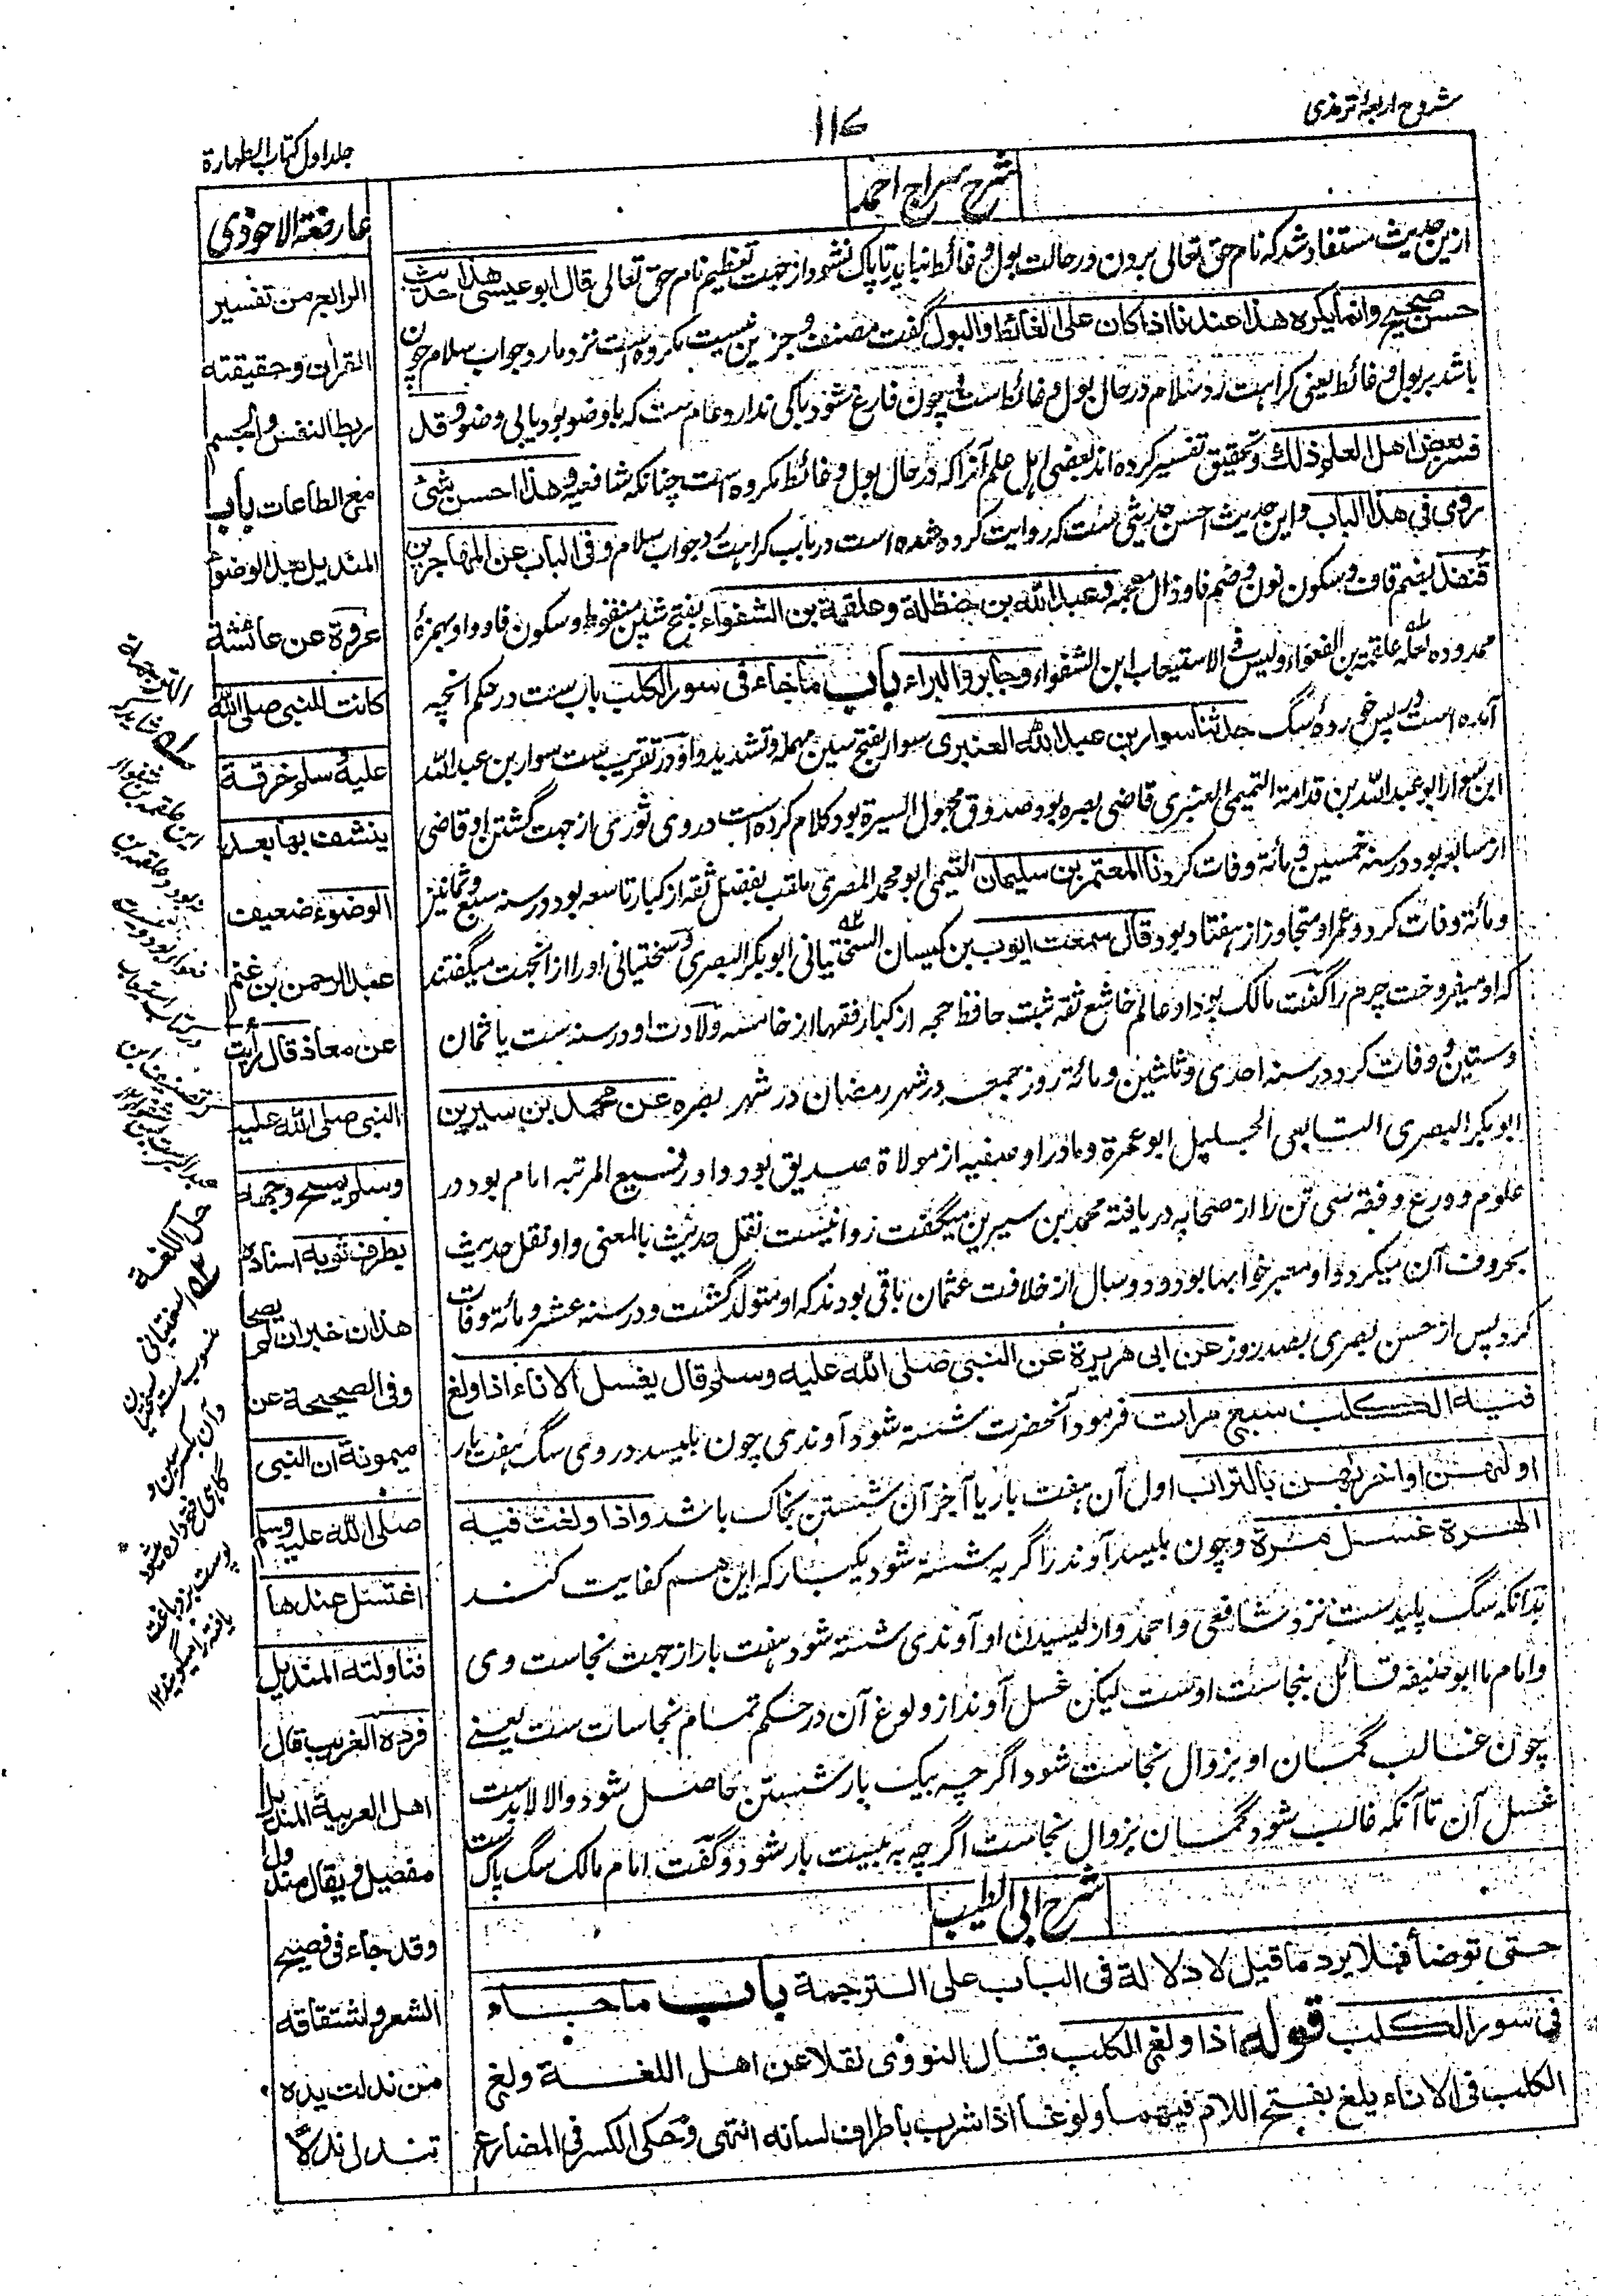 شروح اربعهٔ ترمذی
۱۱۷
جلد اول کتاب الطهارة
شرح سراج احمد
ازین حدیث مستفاد شد که نام حق تعالی بردن در حالت بول و غائط نباید تا پاک نشود از جهت تعظیم نام حق تعالی قال ابو عیسی هذا حدیث
حسن صحیح وانما یکره هذا عندنا اذا کان علی الغائط والبول گفت مصنف و جزین نیست مکروه است نزد ما رد جواب سلام چون
باشد بر بول و غائط یعنی کراهت رد سلام در حال بول و غائط است و چون فارغ شود باکی ندارد عام ست که با وضو بود یا بی وضو و قد
فسر بعض اهل العلم ذلك و تحقیق تفسیر کرده اند بعضی اهل علم آنرا که در حال بول و غائط مکروه است چنانکه شافعیه و هذا احسن شئ
روی فی هذا الباب و این حدیث احسن حدیثی ست که روایت کرده شده است در باب کراهت رد جواب سلام و فی الباب عن المهاجر بن
قنفذ بضم قاف و سکون نون و ضم فا و ذال معجمه و عبد الله بن حنظلة و علقمة بن الشفواء بفتح شین منقوط و سکون فا و واو بهمزهٔ
ممدوده لعله علقمة بن الفغواء ولیس فی الاستیعاب ابن الشفواء و جابر والبراء باب ما جاء فی سور الکلب باب ست در حکم آنچه
آمده است در پس خوردهٔ سگ حدثنا سوار بن عبد الله العنبری سوار بفتح سین مهمله و تشدید واو در تقریب ست سوار بن عبد الله
ابن سوار ابو عبد الله بن قدامة التمیمی العنبری قاضی بصره بود صدوق محمود السیرة بود کلام کرده است در وی ثوری از جهت گشتن او قاضی
از سابعه بود در سنه خمسین و مائة وفات کرد نا المعتمر بن سلیمان التیمی ابو محمد البصری ملقب بفضل ثقه از کبار تاسعه بود در سنه سبع و ثمانین
و مائة وفات کرد و عمر او متجاوز از هفتاد بود قال سمعت ایوب بن کیسان السختیانی ابوبکر البصری و سختیانی او را از انجهت میگفتند
که او میفروخت چرم را گفت مالک بود او عالم خاشع ثقه ثبت حافظ حجه از کبار فقها از خامسه ولادت او در سنه ست یا ثمان
وستین و وفات کرد در سنه احدی و ثلثین و مائة روز جمعه در شهر رمضان در شهر بصره عن محمد بن سیرین
ابوبکر البصری التابعی الجلیل ابو عمرة و مادر او صفیه از مولاة صدیق بود و او رفیع المرتبه امام بود در
علوم و ورع و فقه سی تن را از صحابه دریافته محمد بن سیرین میگفت روا نیست نقل حدیث بالمعنی و او نقل حدیث
بحروف آن میکرد و او معبر خوابها بود و دو سال از خلافت عثمان باقی بودند که او متولد گشت و در سنه عشر و مائة وفات
کرد پس از حسن بصری بصد روز عن ابی هریرة عن النبی صلی الله علیه وسلم قال یغسل الاناء اذا ولغ
فیه الکلب سبع مرات فرمود آنحضرت شسته شود آوندی چون بلیسد در وی سگ هفت بار
اولیهن او اخریهن بالتراب اول آن هفت بار یا آخر آن شستن بخاک باشد واذا ولغت فیه
الهرة غسل مرة و چون بلیسد آوند را گربه شسته شود یکبار که این هم کفایت کند
بدانکه سگ پلید ست نزد شافعی و احمد و از لیسیدن او آوندی شسته شود هفت بار از جهت نجاست وی
و امام ما ابو حنیفه قائل بنجاست اوست لیکن غسل آوند از ولوغ آن در حکم تمام نجاسات ست یعنی
چون غالب گمان او بزوال نجاست شود اگرچه بیک بار شستن حاصل شود والا لابد ست
غسل آن تا آنکه غالب شود گمان بزوال نجاست اگرچه به بیست بار شود و گفت امام مالک سگ پاک ست
شرح ابی الطیب
حتی توضأ فلا یرد ما قیل لا دلالة فی الباب علی الترجمة باب ما جاء
فی سور الکلب قوله اذا ولغ الکلب قال النووی نقلا عن اهل اللغة ولغ
الکلب فی الاناء یلغ بفتح اللام فیهما ولوغا اذا شرب باطراف لسانه انتهی وحکی الکسر فی المضارع
عارضة الاحوذی
الرابع من تفسیر
القرآن وحقیقته
ربط النفس والجسم
مع الطاعات باب
المندیل بعد الوضوء
عروة عن عائشة
کانت للنبی صلی الله
علیه وسلم خرقة
ینشف بها بعد
الوضوء ضعیف
عبد الرحمن بن غنم
عن معاذ قال رأیت
النبی صلی الله علیه
وسلم یمسح وجهه
بطرف ثوبه اسناده
هذان خبران لم یصحا
وفی الصحیحة عن
میمونة ان النبی
صلی الله علیه وسلم
اغتسل عندها
فناولته المندیل
فرده الغریب قال
اهل العربیة المندیل
مفعیل ویقال مندول
وقد جاء فی فصیح
الشعر واشتقاقه
من ندلت یده
تندل ندلًا
حل اللغة
سختیانی
منسوب ست بسختیان
وآن بکسر سین و
گاهی فتح داده میشود
پوست بز دباغت
یافته را میگویند ۱۲